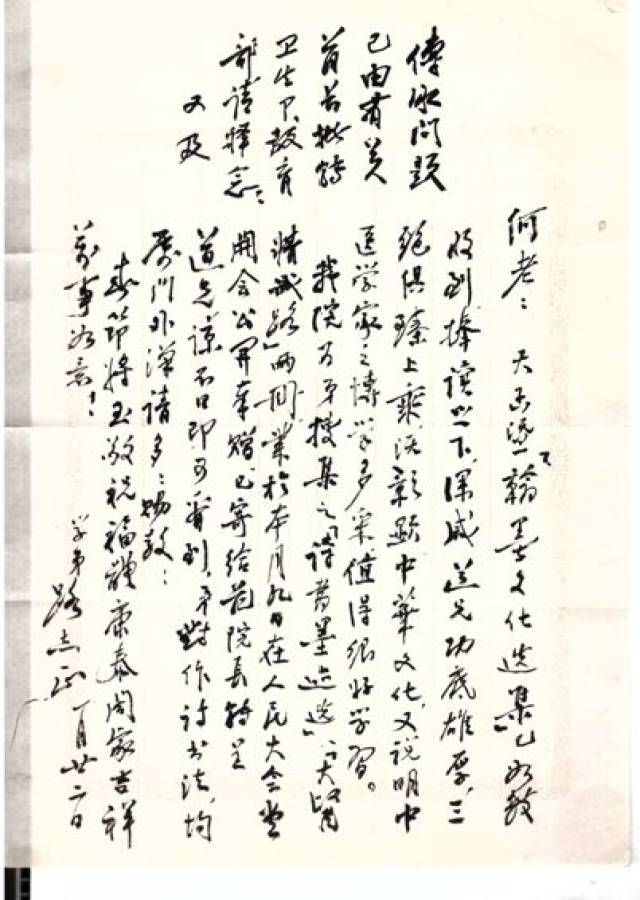 何老：大函暨《翰墨文化选集》已如数
收到，捧读之下，深感道兄功底雄厚，三
绝俱臻上乘，决彰显中华文化，又说明中
医学家之博学多采，值得很好学习。
我院百年搜集之「诗书墨迹选」、「大医
精诚路」两册，业于本月九日在人民大会堂
开会公开奉赠，已寄给范院长转呈
道兄，谅不日即可看到，弟对作诗书法，均
属门外汉，请多：赐教：
春节将至，敬祝福体康泰，阖家吉祥
万事如意！
学弟路志正 一月廿二日
传承问题
已由有关
首长批转
卫生卩、教育
部，请释念：
又及